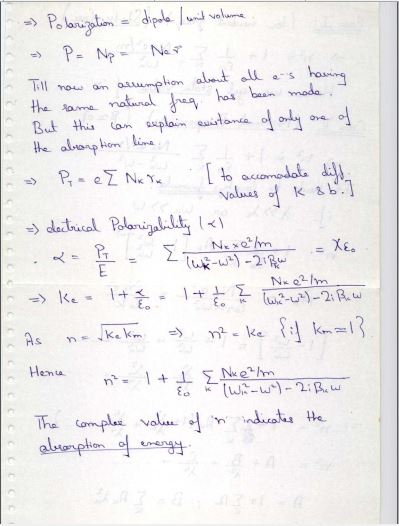 ⇒ Polarization = dipole / unit volume
⇒ P = Np = Ner̄
Till now an assumption about all e-s having
the same natural freq has been made.
But this can explain existance of only one of
the absorption line
⇒ P_T = e Σ N_K r_K [to accomodate diff. values of K & b.]
⇒ electrical Polarizability (α)
. α = P_T / E = Σ (N_K x e²/m) / ((ω_K² - ω²) - 2iβ_K ω) = χε₀
⇒ Ke = 1 + α/ε₀ = 1 + 1/ε₀ Σ_K (N_K e²/m) / ((ω_K² - ω²) - 2iβ_K ω)
As n = √(Ke Km) ⇒ n² = Ke {if Km ≃ 1}
Hence
n² = 1 + 1/ε₀ Σ_K (N_K e²/m) / ((ω_K² - ω²) - 2iβ_K ω)
The complex value of n indicates the
absorption of energy.